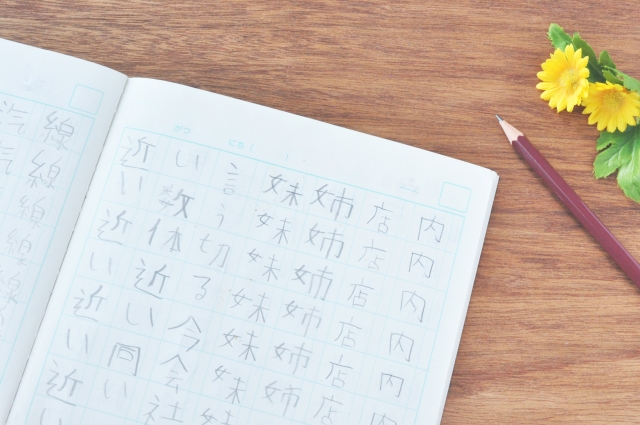 内内内内内
店店店店店店
姉姉姉姉姉姉
妹妹妹妹妹妹
言う切る今会社
い数体近い同い
近い近い近い近い
線線線線線
汽汽